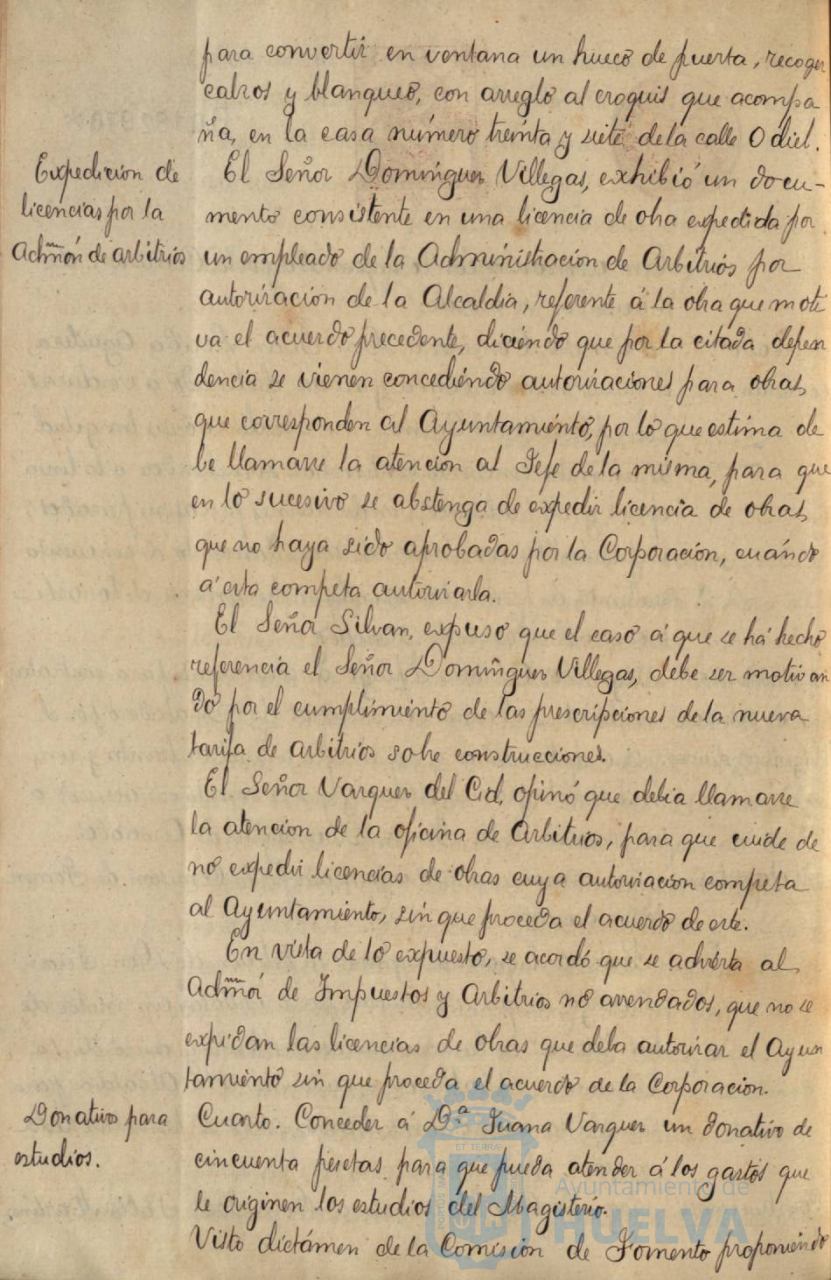 para convertir en ventana un hueco de puerta, recoger
calzos y blanqueo, con arreglo al croquis que acompa
ña, en la casa número treinta y siete de la calle Odiel.
Expedicion de
licencias por la
Admñón de arbitrios
El Señor Domínguez Villegas, exhibió un docu-
mento consistente en una licencia de obra expedida por
un empleado de la Administracion de Arbitrios por
autorizacion de la Alcaldia, referente á la obra que moti
va el acuerdo precedente, diciendo que por la citada depen
dencia se vienen concediendo autorizaciones para obras,
que corresponden al Ayuntamiento, por lo que estima de
be llamarse la atencion al Jefe de la misma, para que
en lo sucesivo se abstenga de expedir licencia de obras,
que no haya sido aprobadas por la Corporación, cuándo
á esta competa autorizarla.
El Señor Silvan, expuso que el caso á que se há hecho
referencia el Señor Domínguez Villegas, debe ser motivan
do por el cumplimiento de las prescripciones de la nueva
tarifa de arbitrios sobre construcciones.
El Señor Vazquez del Cid, opinó que debia llamarse
la atencion de la oficina de Arbitrios, para que cuide de
no expedir licencias de obras cuya autorizacion competa
al Ayuntamiento, sin que proceda el acuerdo de este.
En vista de lo expuesto, se acordó que se advierta al
Admñor de Impuestos y Arbitrios no arrendados, que no se
expidan las licencias de obras que deba autorizar el Ayun
tamiento sin que proceda el acuerdo de la Corporacion.
Donativo para
estudios.
Cuarto. Conceder á D.ª Juana Vazquez un donativo de
cincuenta pesetas para que pueda atender á los gastos que
le originen los estudios del Magisterio.
Visto dictámen de la Comision de Fomento proponiendo
Ayuntamiento de
HUELVA